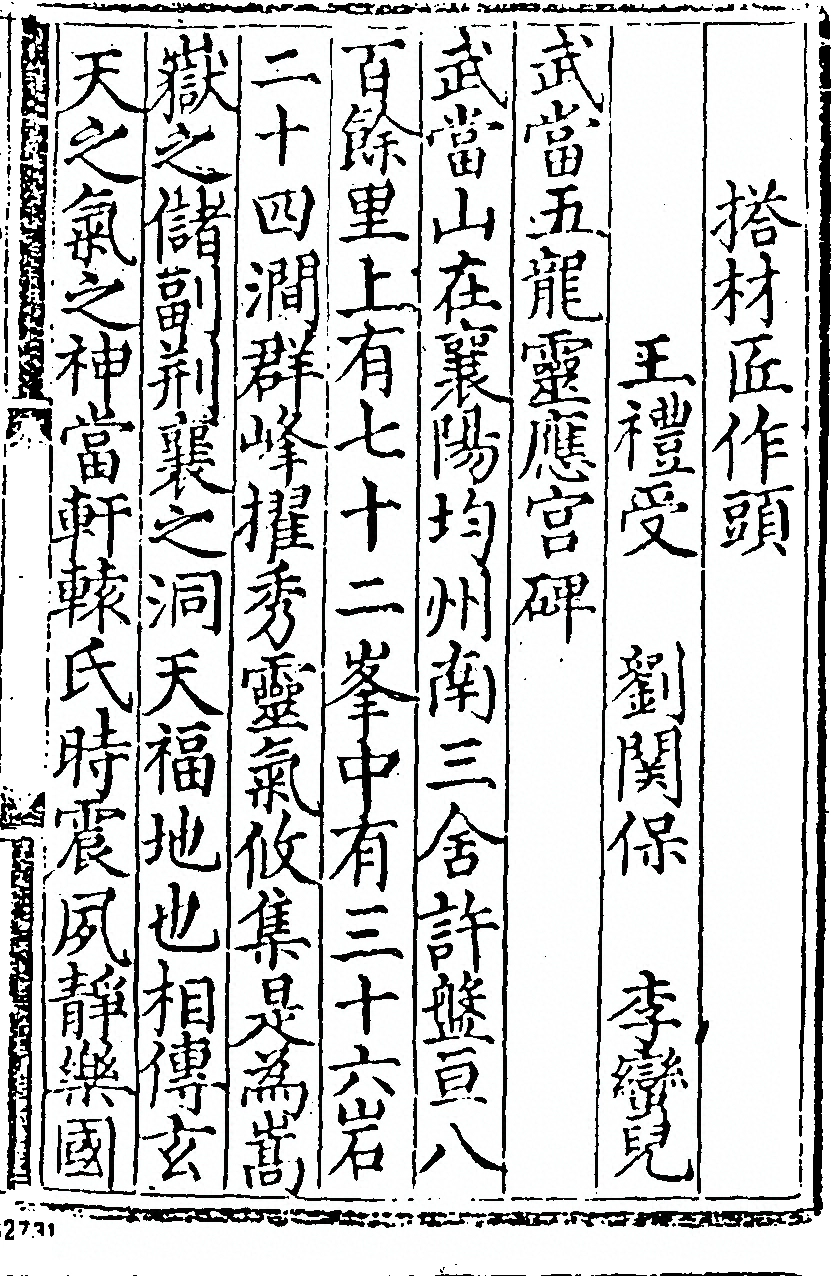 搭材匠作頭
王禮受　劉関保　李巒兒
武當五龍靈應宫碑
武當山在襄陽均州南三舍許盤亘八
百餘里上有七十二峯中有三十六岩
二十四澗群峰擢秀靈氣攸集是為嵩
嶽之儲副荆襄之洞天福地也相傳玄
天之氣之神當軒轅氏時震夙靜樂國